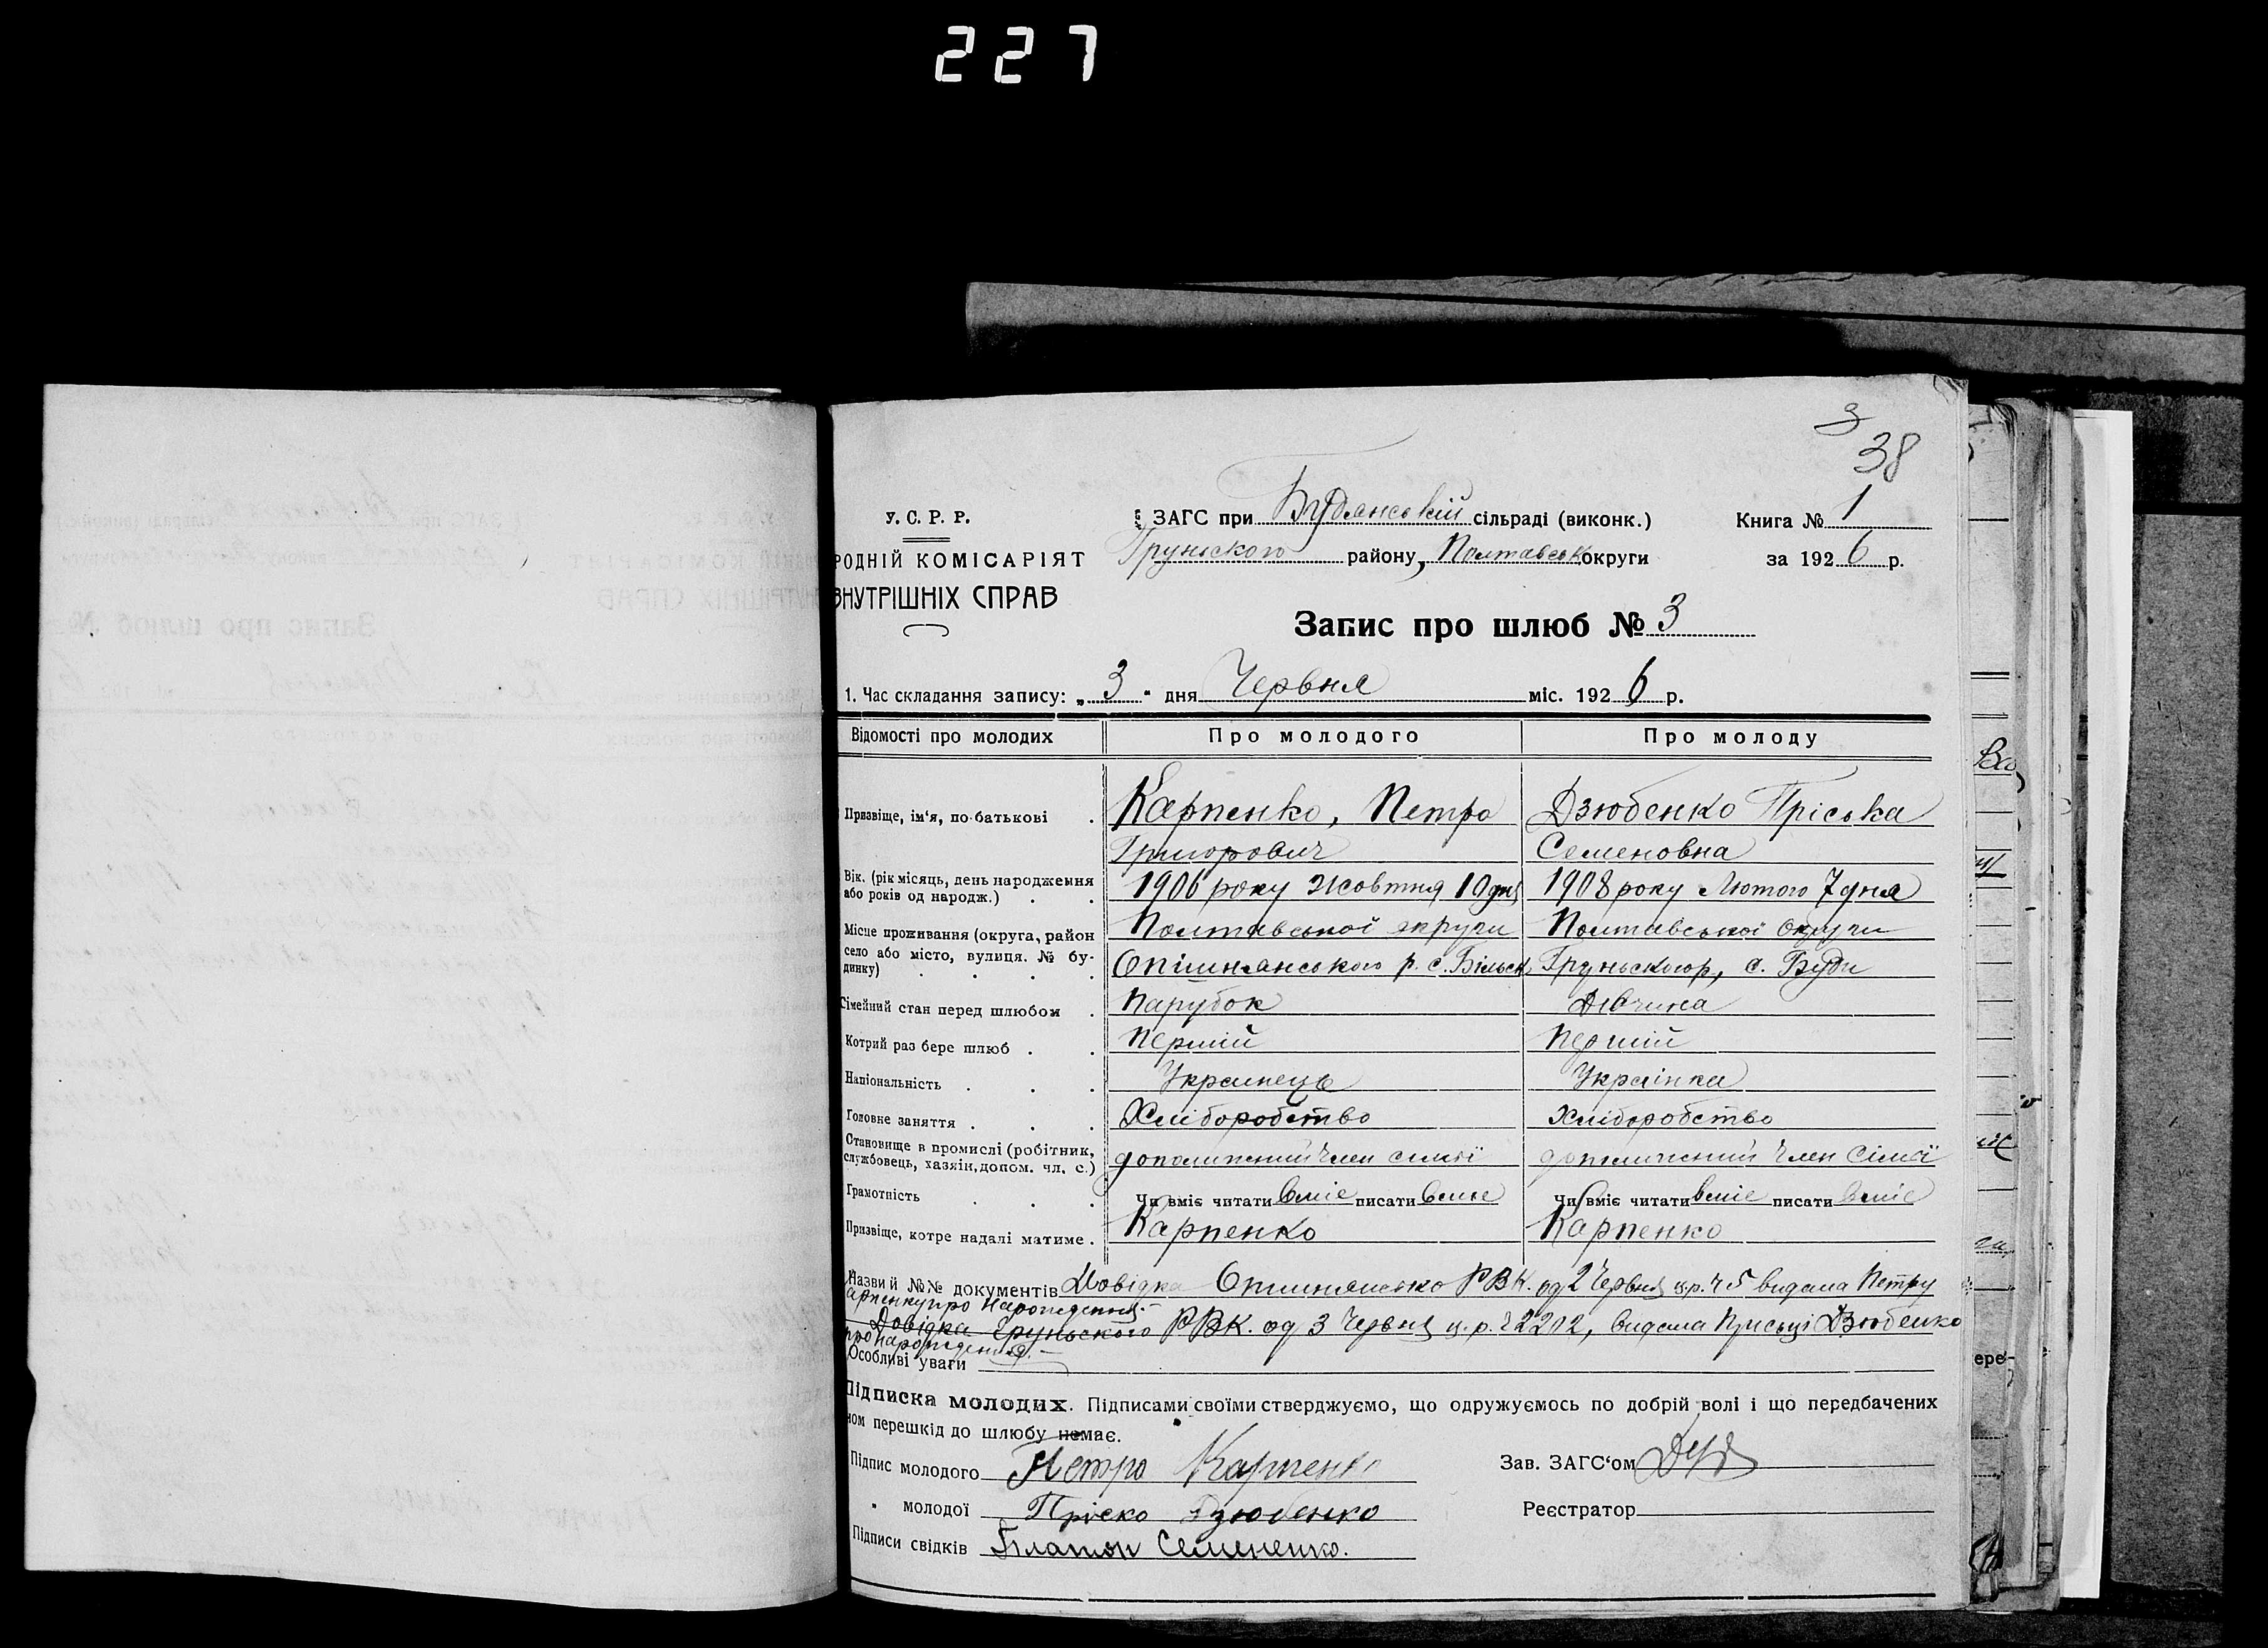 227
3
38
У. С. Р. Р.
РОДНІЙ КОМІСАРІЯТ
ВНУТРІШНІХ СПРАВ
ЗАГС при Будянській сільраді (виконк.)
Груньского району, Полтавськ округи
Книга № 1
за 1926 р.
Запис про шлюб № 3
1. Час складання запису: „3" дня Червня міс. 1926 р.
Відомості про молодих Про молодого Про молоду
Призвіще, ім'я, по-батькові . Карпенко, Петро Дзюбенко Пріська
Григорович Семеновна
Вік. (рік місяць, день народження або років од народж.) . . 1906 року Жовтня 10 дня 1908 року Лютого 7 дня
Місце проживання (округа, район село або місто, вулиця. № будинку) . . . . Полтавської округи Полтавської округи
Опішнянського р. с. Більск Груньского р, с. Буди
Сімейний стан перед шлюбом . Парубок Дівчина
Котрий раз бере шлюб . . Перший Перший
Національність . . . Украінець Украінка
Головне заняття . . . Хліборобство Хліборобство
Становище в промислі (робітник, службовець, хазяїн, допом. чл. с.) допоміжний член сімьї допоміжний член сімьї
Грамотність . . . Чи вміє читати вміє писати вміє Чи вміє читати вміє писати вміє
Призвіще, котре надалі матиме . Карпенко Карпенко
Назви й №№ документів Довідка Опішнянсько РВК. од 2 Червня ц.р. ч 5 видана Петру
арпенку про народження.-
Довідка Груньского РВК. од 3 Червня ц.р. ч 2202, видана Присьці Дзюбенко
про народження.-
Особливі уваги
Підписка молодих. Підписами своїми стверджуємо, що одружуємось по добрій волі і що передбачених
ном перешкід до шлюбу немає.
Підпис молодого Петро Карпенко
Зав. ЗАГС'ом
" молодої Пріско Дзюбенко
Реєстратор
Підписи свідків Платон Семененко.